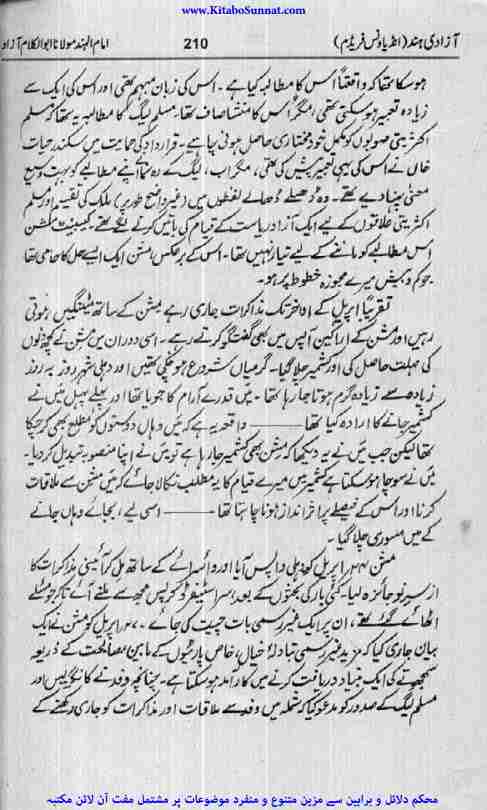 www.KitaboSunnat.com
آزادی ہند (انڈیا ونس فریڈم) 210 امام الہند مولانا ابوالکلام آزاد
ہوسکتا تھا کہ واقعتاً اس کا مطالبہ کیا ہے۔ اس کی زبان مبہم تھی اور اس کی ایک سے
زیادہ تعبیر ہوسکتی تھی، مگر اس کا منشا صاف تھا۔ مسلم لیگ کا مطالبہ یہ تھا کہ مسلم
اکثریتی صوبوں کو مکمل خود مختاری حاصل ہونی چاہیے۔ قرارداد کی حمایت میں سکندر حیات
خاں نے اس کی یہی تعبیر پیش کی تھی، مگر اب، لیگ کے رہنما اپنے مطالبے کو بہت وسیع
معنی پہنا رہے تھے۔ وہ ڈھیلے ڈھالے لفظوں میں (غیر واضح طور پر) ملک کی تقسیم اور مسلم
اکثریتی علاقوں کے لیے ایک آزاد ریاست کے قیام کی باتیں کرنے لگے تھے۔ کیبینٹ مشن
اس مطالبے کو ماننے کے لیے تیار نہیں تھا۔ اس کے برعکس، مشن ایک ایسے حل کا حامی تھا
جو کم و بیش میرے مجوزہ خطوط پر ہو۔
تقریباً اپریل کے اواخر تک مذاکرات جاری رہے۔ مشن کے ساتھ میٹنگیں ہوتی
رہیں اور مشن کے اراکین آپس میں بھی گفتگو کرتے رہے۔ اسی دوران میں مشن نے کچھ دنوں
کی مہلت حاصل کی اور کشمیر چلا گیا۔ گرمیاں شروع ہوچکی تھیں اور دہلی شہر روز بہ روز
زیادہ سے زیادہ گرم ہوتا جا رہا تھا۔ میں قدرے آرام کا جویا تھا اور پہلے پہل میں نے
کشمیر جانے کا ارادہ کیا تھا ——— واقعہ یہ ہے کہ میں وہاں دوستوں کو مطلع بھی کرچکا
تھا لیکن جب میں نے یہ دیکھا کہ مشن بھی کشمیر جا رہا ہے تو میں نے اپنا منصوبہ تبدیل کر دیا۔
میں نے سوچا ہوسکتا ہے کشمیر میں میرے قیام کا یہ مطلب نکالا جائے کہ میں مشن سے ملاقات
کرنا اور اس کے فیصلے پر اثر انداز ہونا چاہتا تھا ——— اسی لیے، بجائے وہاں جانے
کے میں مسوری چلا گیا۔
مشن ۲۴ اپریل کو دہلی واپس آیا اور وائسرائے کے ساتھ مل کر آئینی مذاکرات کا
از سر نو جائزہ لیا۔ کئی بار کی بحثوں کے بعد، سر اسٹیفرڈ کرپس مجھ سے ملنے آئے تاکہ جو مسئلے
اٹھائے گئے تھے، ان پر ایک غیر رسمی بات چیت کی جائے۔ ۲۷ اپریل کو مشن نے ایک
بیان جاری کیا کہ مزید غیر رسمی تبادلۂ خیال، خاص پارٹیوں کے مابین مصالحت کے ذریعہ
سمجھوتے کی ایک بنیاد دریافت کرنے میں کارآمد ہوسکتا ہے۔ چنانچہ وفد نے کانگریس اور
مسلم لیگ کے صدور کو مدعو کیا کہ شملہ میں وفد سے ملاقات اور مذاکرات کو جاری رکھنے کے
محکم دلائل و براہین سے مزین متنوع و منفرد موضوعات پر مشتمل مفت آن لائن مکتبہ